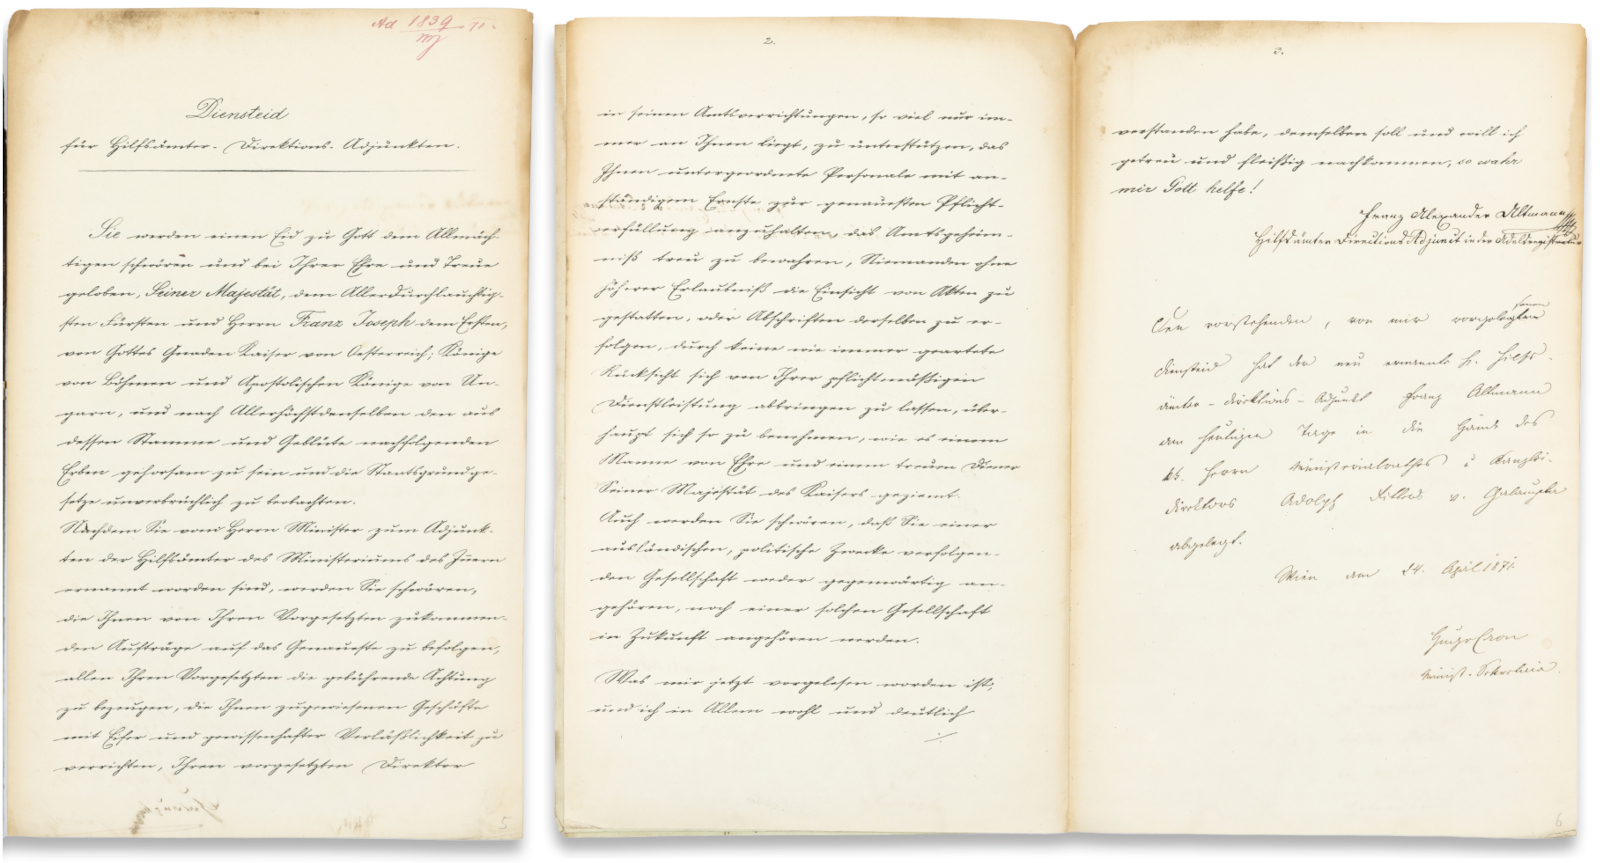 Ad 1839 / MJ 71.
Diensteid
für Hilfsämter-Direktions-Adjunkten.
Sie werden einen Eid zu Gott dem Allmäch-
tigen schwören und bei Ihrer Ehre und Treue
geloben, Seiner Majestät, dem Allerdurchlauchtig-
sten Fürsten und Herrn Franz Joseph dem Ersten,
von Gottes Gnaden Kaiser von Oesterreich, Könige
von Böhmen und Apostolischen Könige von Un-
garn, und nach Allerhöchstdenselben den aus
dessen Stamme und Geblüte nachfolgenden
Erben gehorsam zu sein und die Staatsgrundge-
setze unverbrüchlich zu beobachten.
Nachdem Sie vom Herrn Minister zum Adjunk-
ten der Hilfsämter des Ministeriums des Innern
ernannt worden sind, werden Sie schwören,
die Ihnen von Ihren Vorgesetzten zukommen-
den Aufträge auf das Genaueste zu befolgen,
allen Ihren Vorgesetzten die gebührende Achtung
zu bezeugen, die Ihnen zugewiesenen Geschäfte
mit Eifer und gewissenhafter Verläßlichkeit zu
verrichten, Ihren vorgesetzten Direktor
5
2.
in seinen Amtsverrichtungen, so viel nur im-
mer an Ihnen liegt, zu unterstützen, das
Ihnen untergeordnete Personale mit an-
ständigem Ernste zur genauesten Pflicht-
erfüllung anzuhalten, das Amtsgeheim-
niß treu zu bewahren, Niemanden ohne
höherer Erlaubniß die Einsicht von Akten zu
gestatten, oder Abschriften derselben zu er-
folgen, durch keine wie immer geartete
Rücksicht sich von Ihrer pflichtmäßigen
Dienstleistung abbringen zu lassen, über-
haupt sich so zu benehmen, wie es einem
Manne von Ehre und einem treuen Diener
Seiner Majestät des Kaisers geziemt.
Auch werden Sie schwören, daß Sie einer
ausländischen, politische Zwecke verfolgen-
den Gesellschaft weder gegenwärtig an-
gehören, noch einer solchen Gesellschaft
in Zukunft angehören werden.
Was mir jetzt vorgelesen worden ist,
und ich in Allem wohl und deutlich
3.
verstanden habe, demselben soll und will ich
getreu und fleißig nachkommen, so wahr
mir Gott helfe!
Franz Alexander Altmann
Hilfsämter Directions Adjunct in der Adelsregistratur
Den vorstehenden, von mir vorgelesenen
Diensteid hat der neu ernannte H. Hilfs-
ämter-Direktions-Adjunkt Franz Altmann
am heutigen Tage in die Hände des
Herrn Ministerialrathes u Kanzlei-
direktors Adolph v.
abgelegt.
Wien am 24. April 1871.
Minist. Sekretär.
6